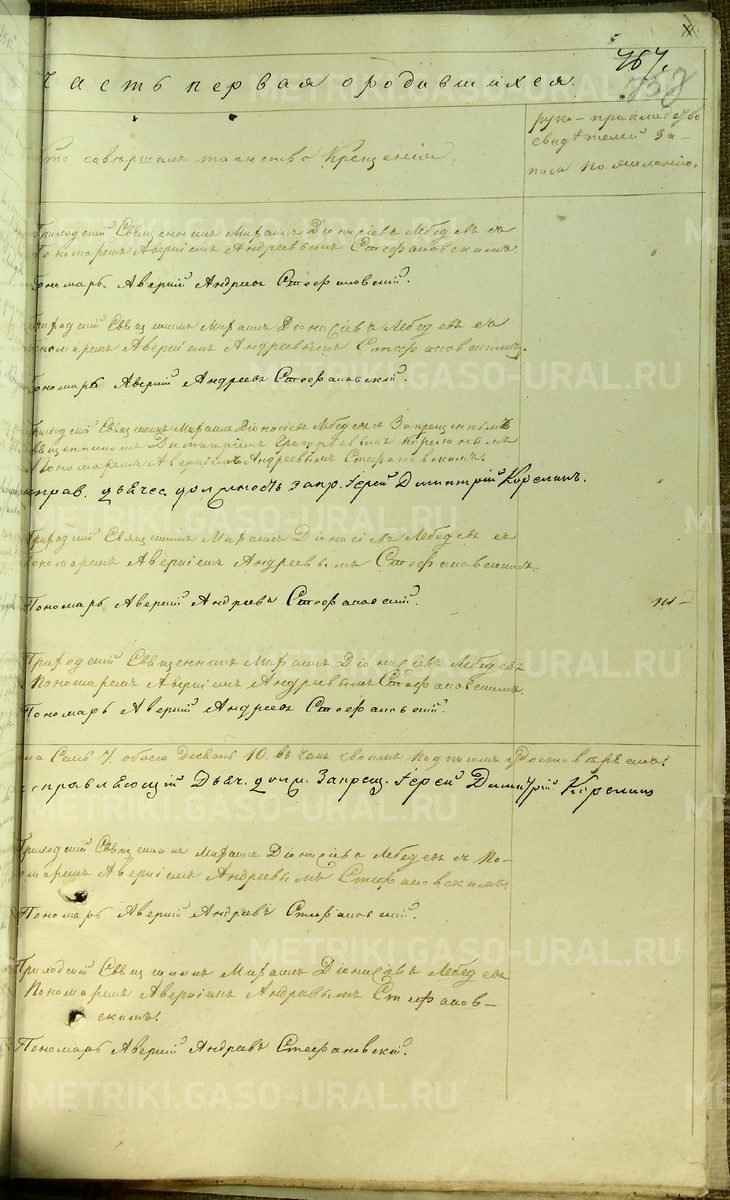 767.
758
Часть первая о родившихся.
Кто совершалъ таинство Крещенія.
руко-прикладство
свидѣтелей за-
писи по желанію.
Приходскій Священникъ Михаилъ Діонисіевъ Лебедевъ съ
Пономаремъ Аверкіемъ Андреевымъ Стефановскимъ
Пономарь Аверкій Андреевъ Стефановскій.
Приходскій Священникъ Михаилъ Діонисіевъ Лебедевъ съ
Пономаремъ Аверкіемъ Андреевымъ Стефановскимъ.
Пономарь Аверкій Андреевъ Стефановскій.
Приходскій Священникъ Михаилъ Діонисіевъ Лебедевъ съ Запрещеннымъ
Священникомъ Димитріемъ Григорьевымъ Корелинымъ
Пономаремъ Аверкіемъ Андреевымъ Стефановскимъ.
Исправ. дьячес. должность запр. Іерей Димитрій Корелинъ.
Приходскій Священникъ Михаилъ Діонисіевъ Лебедевъ съ
Пономаремъ Аверкіемъ Андреевымъ Стефановскимъ.
Пономарь Аверкій Андреевъ Стефановскій.
Приходскій Священникъ Михаилъ Діонисіевъ Лебедевъ
Пономаремъ Аверкіемъ Андреевымъ Стефановскимъ.
Пономарь Аверкій Андреевъ Стефановскій.
Семь 7. обоего Десять 10. въ чемъ своимъ подписомъ удостовѣряемъ:
Исправляющій Дьяч. долж. Запрещ. Іерей Димитрій Корелинъ
Приходскій Священникъ Михаилъ Діонисіевъ Лебедевъ съ По-
номаремъ Аверкіемъ Андреевымъ Стефановскимъ.
Пономарь Аверкій Андреевъ Стефановскій.
Приходскій Священникъ Михаилъ Діонисіевъ Лебедевъ
Пономаремъ Аверкіемъ Андреевымъ Стефанов-
скимъ.
Пономарь Аверкій Андреевъ Стефановскій.
METRIKI.GASO-URAL.RU